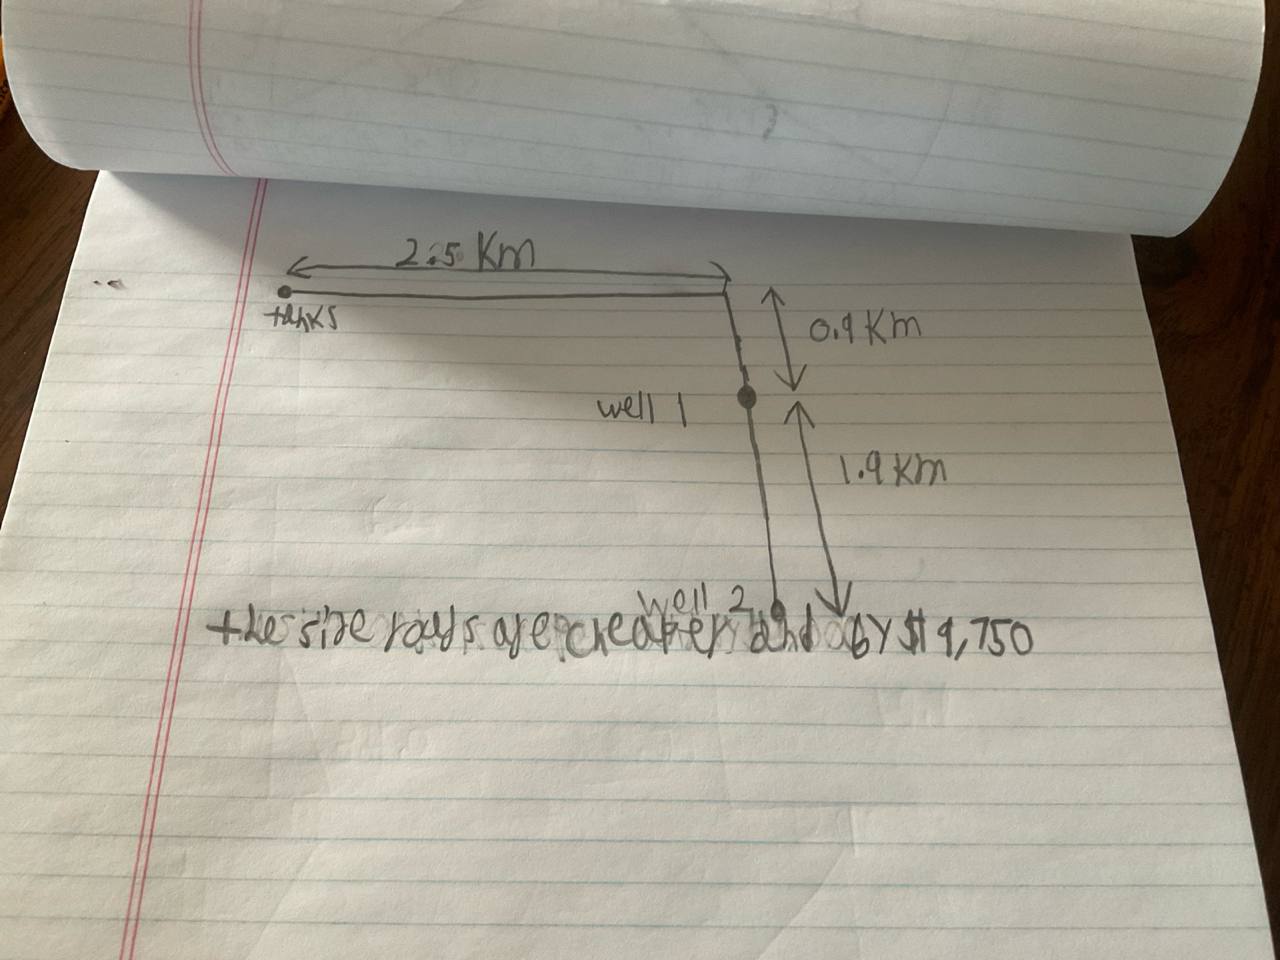 2.5 Km
tanks
0.9 Km
well 1
1.9 Km
well 2
the side roads are cheaper and by $ 9,750